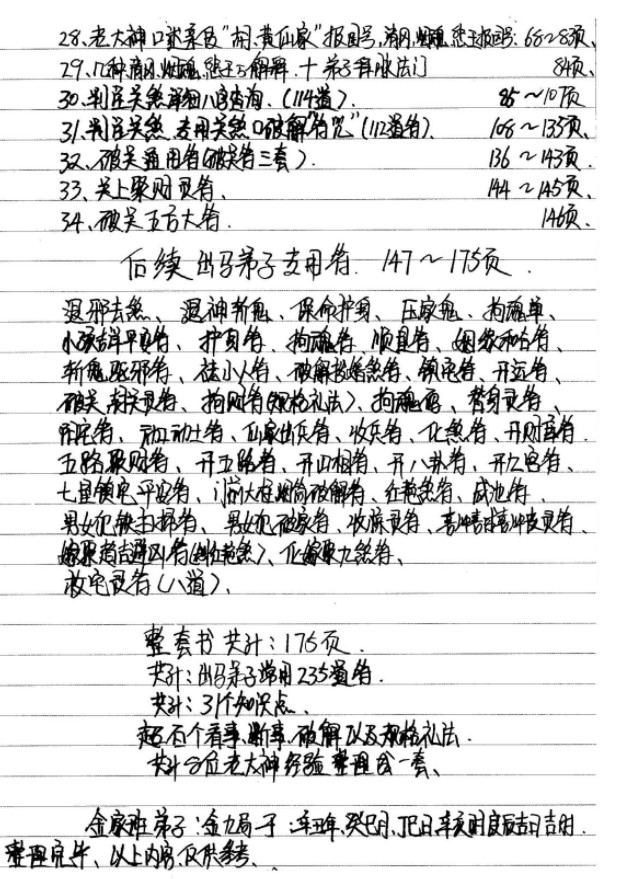 28、老大神口述亲授“胡、黄仙家”报国号,清风,烟魂,悲王报号: 68~83页、
29、几种清风,烟魂,悲王的解释、十弟子 法门 84页、
30、判官关煞详细八字查询、(114道)、 85~107页
31、判官关煞、专用关煞口破解“符咒”(112道符)、 108~135页、
32、破关通用符(破关符三套)、 136~143页、
33、关上聚财灵符、 144~145页、
34、破关五方大符. 146页、
后续出马弟子专用符、147~175页.
退邪去煞、退神斩鬼、保命护身、压家鬼、拘魂单、
小孩吉祥平安符、护身符、拘魂符、顺星符、姻缘和合符、
斩鬼驱邪符、祛小人符、破解 煞符、镇宅符、开运符、
破关 灵符、拘财符(规格礼法)、拘魂码、替身灵符、
阴宅符、动工动土符、仙家出兵符、收兵符、化煞符、开财库符.
五路聚财符、开五路符、开四相符、开八卦符、开九宫符、
七星镇宅平安符、门前大树烟筒破解符、红艳煞符、咸池符.
男女犯 符、男女犯破家符、收 灵符、喜冲喜 灵符、
嫁娶趋吉避凶符(红艳煞)、化嫁娶九煞符、
救宅灵符(八道)、
整套书共计:175页.
共计:出马弟子常用235道符.
共计:31个知识点、
起石个看事,断事,破解以及规格礼法.
共计8位老大神经验整理合一套、
金家班弟子:金九局一于:辛丑年,癸巳月,丁巳日,辛亥时良辰吉日吉时.
整理完毕、以上内容,仅供参考、